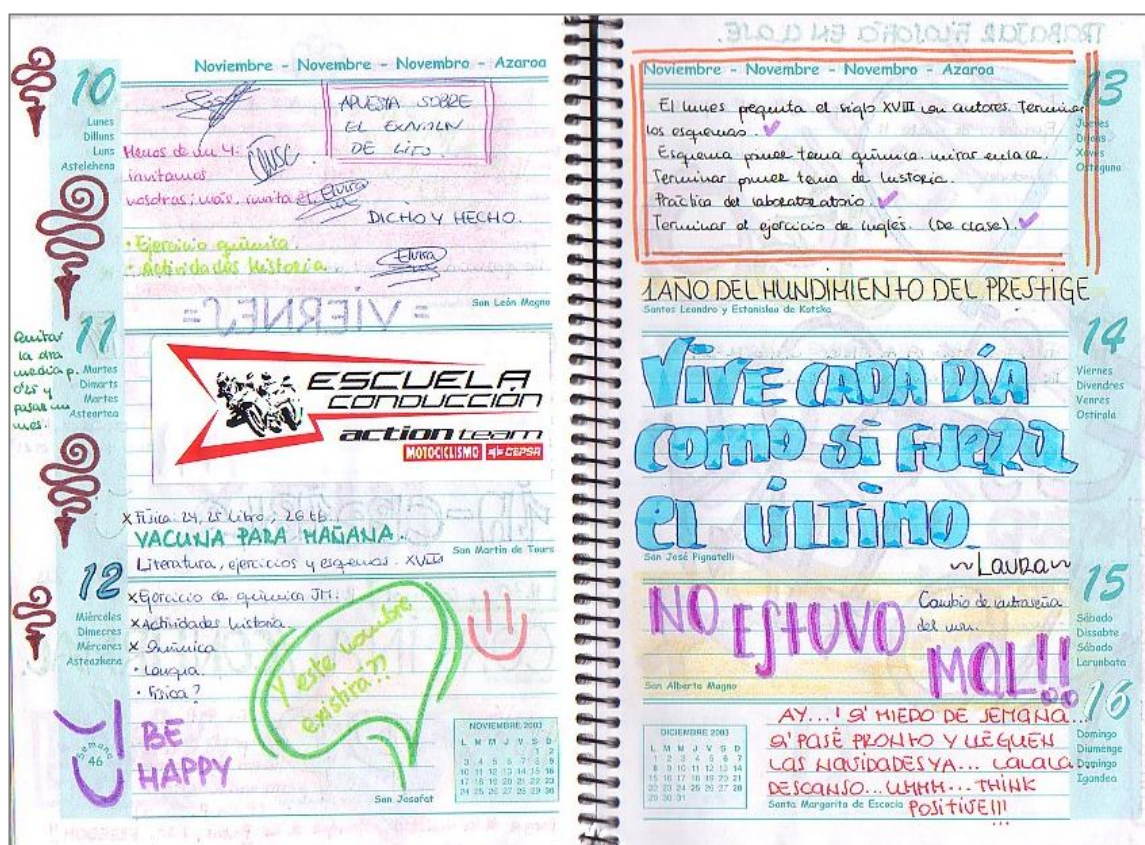 Noviembre - Novembre - Novembro - Azaroa
10
Lunes
Dilluns
Luns
Astelehena
APUESTA SOBRE
EL EXAMEN
DE LITO.
Menos de un 4:
invitamos
nosotras; más, invita él.
Elvira
DICHO Y HECHO.
Elvira
· Ejercicio química.
· Actividades historia.
San León Magno
= VIERNES =
11
Martes
Dimarts
Martes
Asteartea
Quitar
la dra
media p.
025 y
pasar un
mes.
ESCUELA
CONDUCCIÓN
action team
MOTOCICLISMO CEPSA
x Física: 24, 25 libro, 26 tb.
VACUNA PARA MAÑANA.
San Martín de Tours
Literatura, ejercicios y esquemas. XVIII
12
Miércoles
Dimecres
Mércores
Asteazkena
x Ejercicio de química JM.
x Actividades historia.
x Química
· Lengua.
· Física?
Y este hombre
existirá??
Semana
46
BE
HAPPY
NOVIEMBRE 2003
L M M J V S D
1 2
3 4 5 6 7 8 9
10 11 12 13 14 15 16
17 18 19 20 21 22 23
24 25 26 27 28 29 30
San Josafat
TRABAJAR FILOSOFÍA EN CLASE.
Noviembre - Novembre - Novembro - Azaroa
13
Jueves
Dijous
Xoves
Osteguna
El lunes pregunta el siglo XVIII con autores. Terminar
los esquemas.
Esquema primer tema química. mirar enlace.
Terminar primer tema de historia.
Práctica del laboratorio.
Terminar el ejercicio de inglés. (De clase).
1 AÑO DEL HUNDIMIENTO DEL PRESTIGE
Santos Leandro y Estanislao de Kotska
14
Viernes
Divendres
Venres
Ostirala
VIVE CADA DÍA
COMO SI FUERA
EL ÚLTIMO
San José Pignatelli
~ LAURA ~
15
Sábado
Dissabte
Sábado
Larunbata
NO ESTUVO
MAL!!
Cambio de contraseña
del msn.
San Alberto Magno
16
Domingo
Diumenge
Domingo
Igandea
DICIEMBRE 2003
L M M J V S D
1 2 3 4 5 6 7
8 9 10 11 12 13 14
15 16 17 18 19 20 21
22 23 24 25 26 27 28
29 30 31
AY...! Q' MIEDO DE SEMANA...
Q' PASE PRONTO Y LLEGUEN
LAS NAVIDADES YA... LALALA
DESCANSO... UHMM... THINK
POSITIVE!!!
Santa Margarita de Escocia